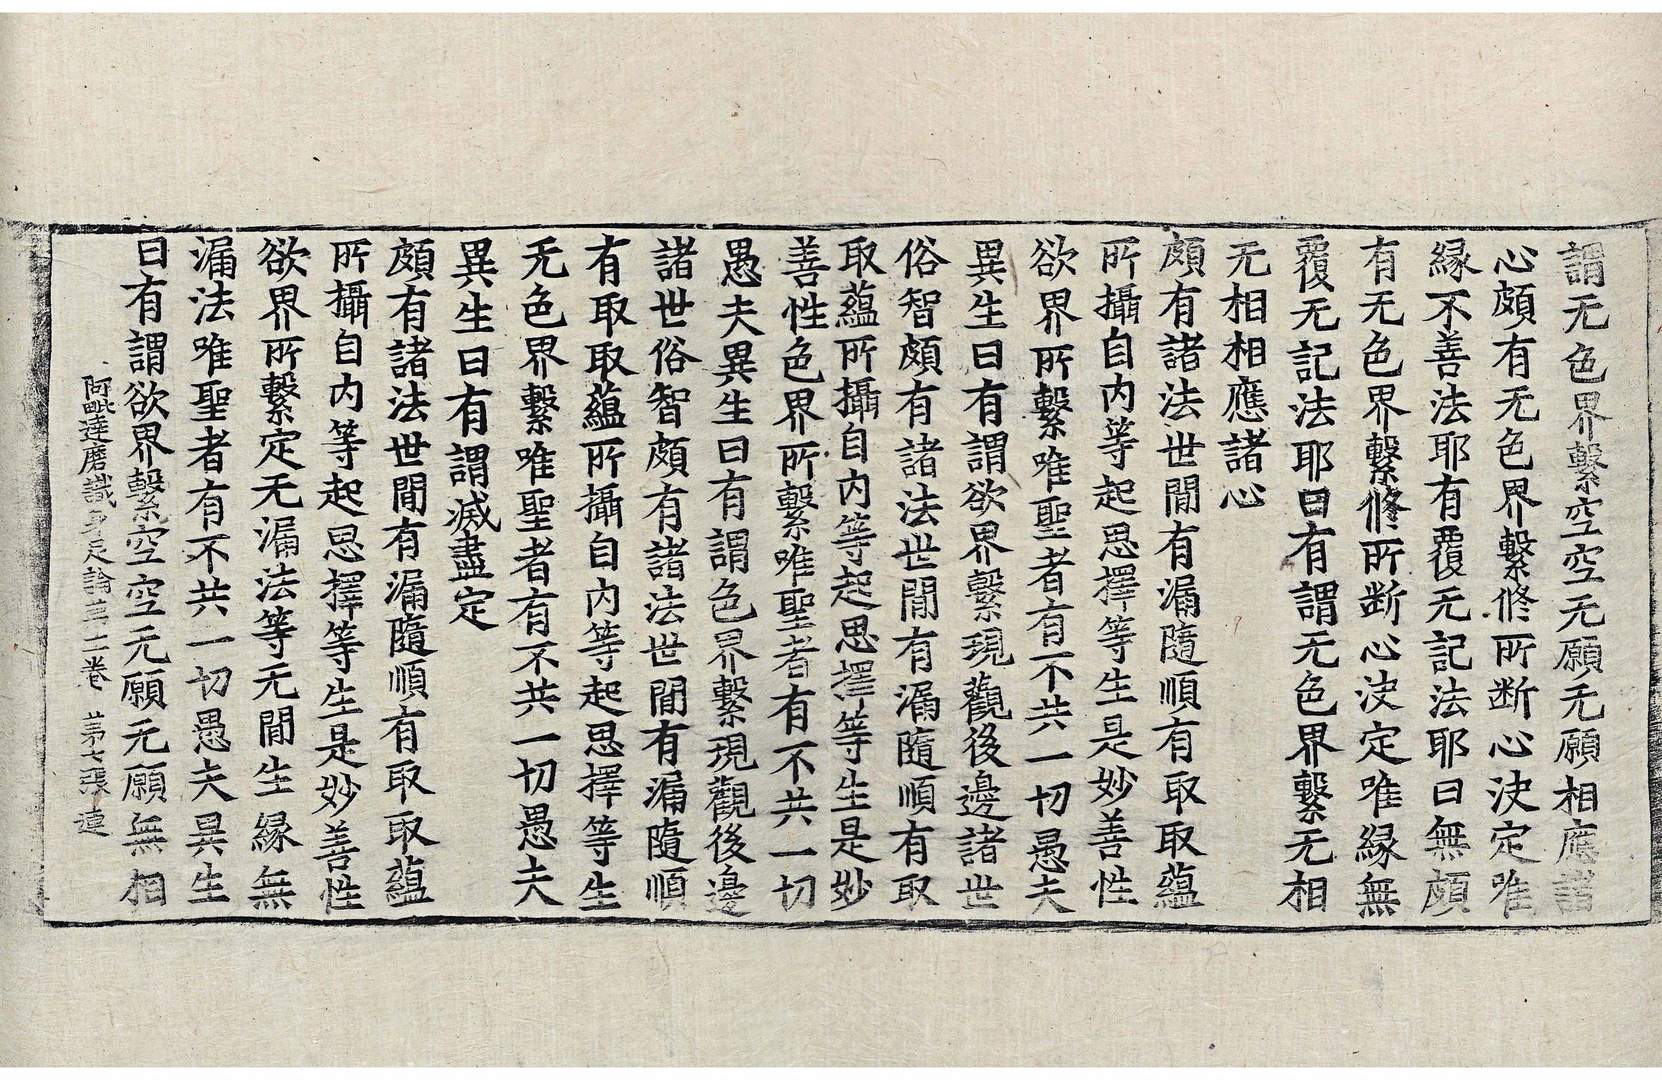 謂无色界繫空空无願无願相應諸
心頗有无色界繫修所断心決定唯
縁不善法耶有覆无記法耶曰無頗
有无色界繫修所断心決定唯縁無
覆无記法耶曰有謂无色界繫无相
无相相應諸心
頗有諸法世間有漏隨順有取取蘊
所攝自內等起思擇等生是妙善性
欲界所繫唯聖者有不共一切愚夫
異生曰有謂欲界繫現觀後邊諸世
俗智頗有諸法世間有漏隨順有取
取蘊所攝自內等起思擇等生是妙
善性色界所繫唯聖者有不共一切
愚夫異生曰有謂色界繫現觀後邊
諸世俗智頗有諸法世間有漏隨順
有取取蘊所攝自內等起思擇等生
无色界繫唯聖者有不共一切愚夫
異生曰有謂滅盡定
頗有諸法世間有漏隨順有取取蘊
所攝自内等起思擇等生是妙善性
欲界所繫定无漏法等无間生縁無
漏法唯聖者有不共一切愚夫異生
曰有謂欲界繫空空无願无願無相
阿毗達磨識身足論第十二卷 第七張 連